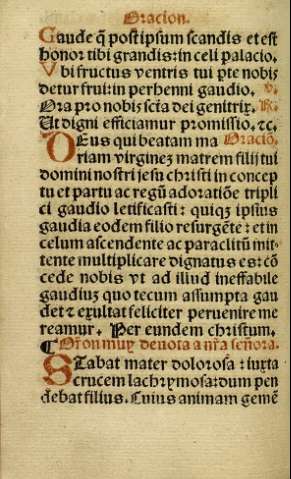 Oracion.
Gaude q̄ postipsum scandis et est
honor tibi grandis: in celi palacio.
Ubi fructus ventris tui p̱te nobis
detur frui: in perhenni gaudio. v.
Ora pro nobis sct̄a dei genitrix. ℞.
Ut digni efficiamur promissio. ⁊c.
DEus qui beatam ma Oracio.
riam virginez matrem filij tui
domini nostri jesu christi in concep
tu et partu ac regū adoratiōe tripli
ci gaudio letificasti: quiqz ipsius
gaudia eodem filio resurgēte: et in
celum ascendente ac paraclitū mit-
tente multiplicare dignatus es: cō
cede nobis vt ad illud ineffabile
gaudiuz quo tecum assumpta gau
det ⁊ exultat feliciter peruenire me
reamur. Per eundem christum.
¶ Or̄on muy deuota a nr̄a señora.
STabat mater dolorosa: iuxta
crucem lachrymosa: dum pen
debat filius. Cuius animam gemē